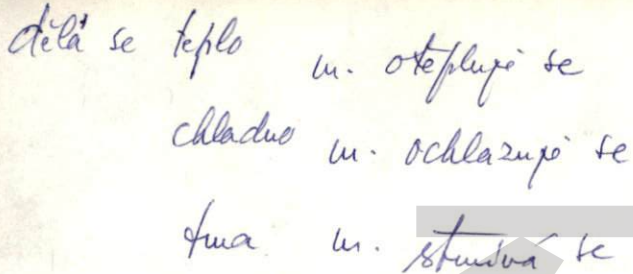 dělá se teplo m. otepluje se
chladno m. ochlazuje se
tma m. stmívá se